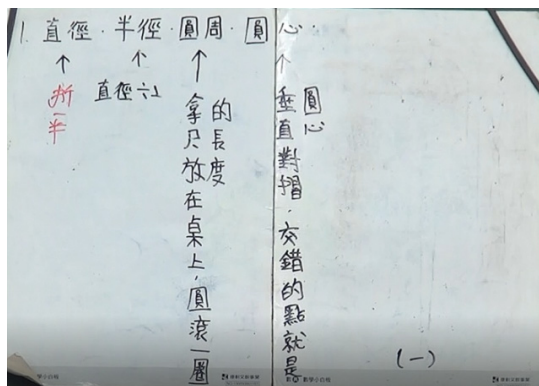 1. 直徑．半徑．圓周．圓心．
↑ ↑ ↑ ↑
折一半
直徑÷2
拿尺放在桌上，圓滾一圈
的長度
垂直對摺．交錯的點就是
圓心
(一)
數學小白板
數學小白板